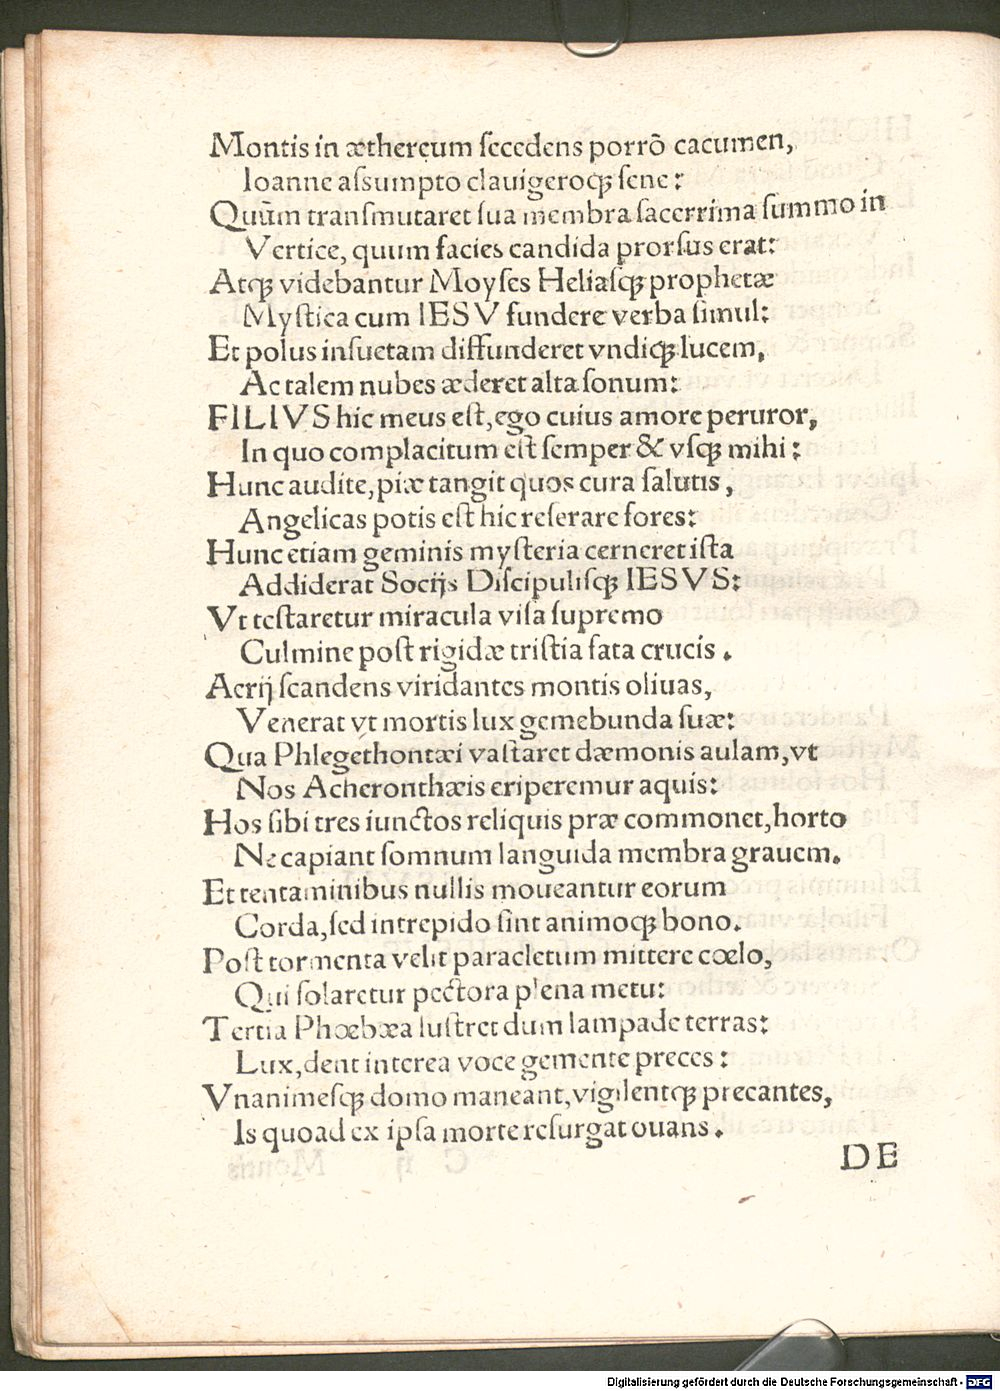 Montis in æthereum ſecedens porrō cacumen,
Ioanne aſſumpto clauigeroqꝫ ſene:
Quūm tranſmutaret ſua membra ſacerrima ſummo in
Vertice, quum facies candida prorſus erat:
Atqꝫ videbantur Moyſes Heliaſqꝫ prophetæ
Myſtica cum IESV fundere verba ſimul:
Et polus inſuetam diffunderet vndiqꝫ lucem,
Ac talem nubes æderet alta ſonum:
FILIVS hic meus eſt, ego cuius amore peruror,
In quo complacitum eſt ſemper & vſqꝫ mihi:
Hunc audite, piæ tangit quos cura ſalutis,
Angelicas potis eſt hic reſerare fores:
Hunc etiam geminis myſteria cerneret iſta
Addiderat Socijs Diſcipuliſqꝫ IESVS:
Vt teſtaretur miracula viſa ſupremo
Culmine poſt rigidæ triſtia fata crucis.
Aerij ſcandens viridantes montis oliuas,
Venerat vt mortis lux gemebunda ſuæ:
Qua Phlegethontæi vaſtaret dæmonis aulam, vt
Nos Acheronthæis eriperemur aquis:
Hos ſibi tres iunctos reliquis præ commonet, horto
Ne capiant ſomnum languida membra grauem.
Et tentaminibus nullis moueantur eorum
Corda, ſed intrepido ſint animoqꝫ bono.
Poſt tormenta velit paracletum mittere cœlo,
Qui ſolaretur pectora plena metu:
Tertia Phœbæa luſtret dum lampade terras:
Lux, dent interea voce gemente preces:
Vnanimeſqꝫ domo maneant, vigilentqꝫ precantes,
Is quoad ex ipſa morte reſurgat ouans.
DE
Digitalisierung gefördert durch die Deutsche Forschungsgemeinschaft - DFG